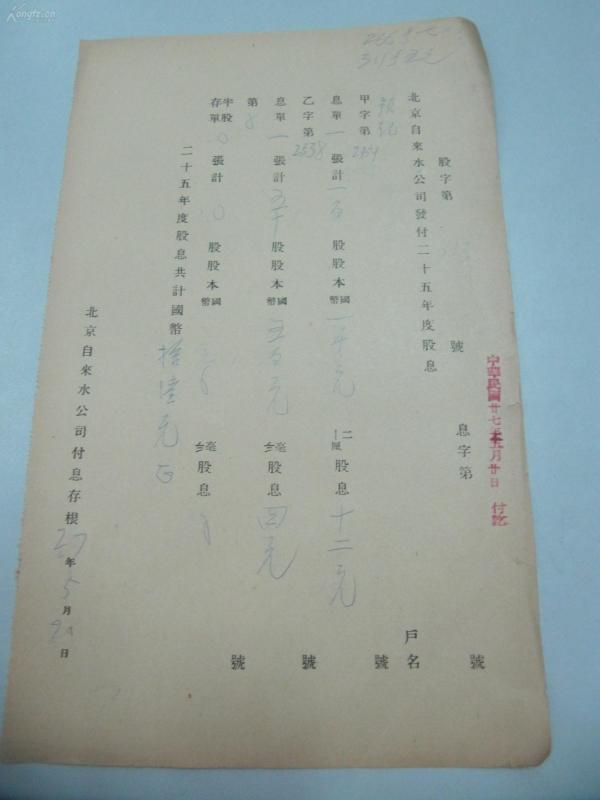 Kongfz.cn
中華民國廿七年五月廿日 付訖
股字第 號 息字第 號
北京自來水公司發付二十五年度股息 戶名
甲字第 號
息單一張計一百股股本國幣一千元 二厘 股息十二元
乙字第2538號
息單一張計五十股股本國幣五百元 毫 股息四元
第 號
半股存單0張計0股股本國幣 毫 股息
二十五年度股息共計國幣拾陸元正
北京自來水公司付息存根27年5月20日